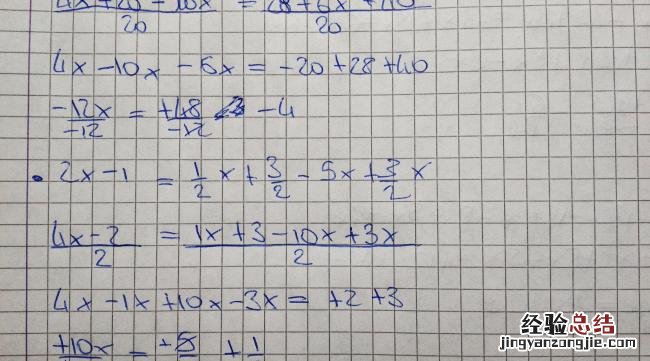 4x + 20 - 10x = 28 + 6x + 40
20 20
4x - 10x - 6x = -20 + 28 + 40
-12x/-12 = +48/-12 -4
• 2x - 1 = 1/2 x + 3/2 - 5x + 3/2 x
4x - 2 / 2 = 1x + 3 - 10x + 3x / 2
4x - 1x + 10x - 3x = +2 + 3
+10x = +5 +1
经验总结
jingyanzongjie.com